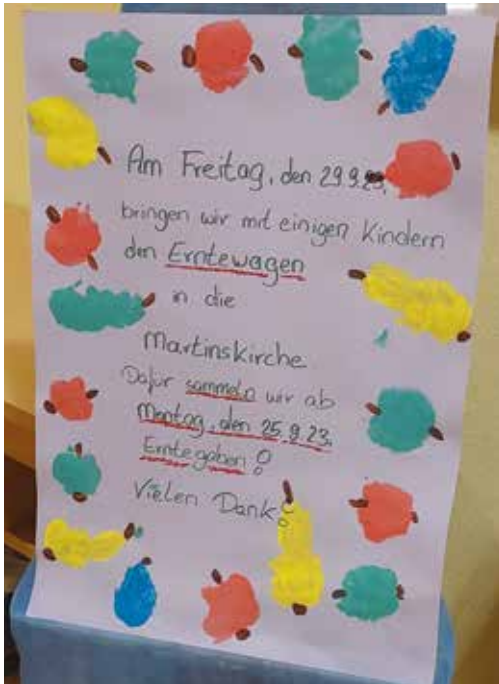 Am Freitag, den 29.9.23,
bringen wir mit einigen Kindern
den Erntewagen
in die
Martinskirche
Dafür sammeln wir ab
Montag, den 25.9.23,
Erntegaben!
Vielen Dank!